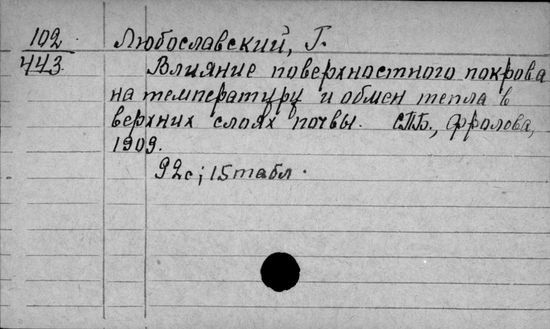 102 Любославский, Г.
443 Влияние поверхностного покрова
на температуру и обмен тепла в
верхних слоях почвы. СПБ., Фролова,
1909.
92с; 15 табл.